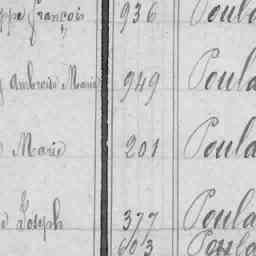 ppe françois 936 Poula
Ambroise Marie 949 Poula
Marie 201 Poula
Joseph 377 Poula
603 Poula